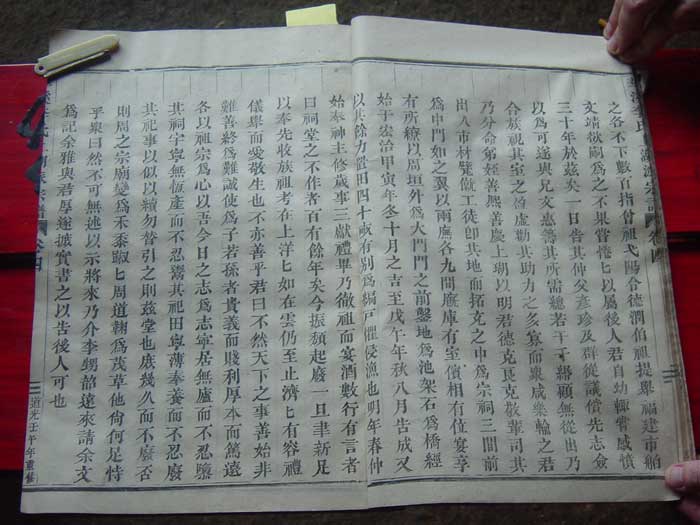 源宗譜 卷四
之各不下數百指曾祖弋陽令德潤伯祖提舉福建市舶
文靖欲嗣爲之不果嘗惓匕以屬後人君自幼輒嘗感憤
三十年於茲矣一日告其仲父彥珍及群從議償先志僉
以爲可遂與兄文惠籌其所需總若干顧無從出乃
合族視其室之虛勸其助力之多寡而衆咸樂輸之君
乃分命弟姪善熙善慶上瑚以明君德克艮克敬輩司其
出入市材甓飲工徒卽其地而拓充之中爲宗祠三間前
爲中門如之翼以兩廡各九間庫有室儐相有位宴享
有所繚以周垣外爲大門門之前鑿地爲池架石爲橋經
始于宏治甲寅年冬十月之吉至戊午年秋八月告成又
以其餘力置田四十畝有別爲戶懼侵漁也明年春仲
始奉神主修歲事三獻禮畢乃徹俎而宴酒數行有言者
曰祠堂之不作者百有餘年矣今振頹起廢一旦聿新足
以奉先收族祖考在上洋匕如在雲仍至止濟匕有容禮
儀舉而愛敬生也不亦善乎君曰不然天下之事善始非
難善終爲難誠使爲子若孫者貴義而賤利厚本而篤遠
各以祖宗爲心以吾今日之志爲志寧居無廬而不忍隳
其祠宇寧無恆產而不忍鬻其祀田寧薄奉養而不忍廢
其祀事以似以續勿替引之則茲堂也庶幾久而不廢否
則周之宗廟變爲禾黍匕周道鞠爲茂草他尙何足恃
乎衆曰然不可無述以示將來乃介李甥韶遠來請余文
爲記余雅與君厚遂摭實書之以告後人可也
卷四
道光壬午年重修